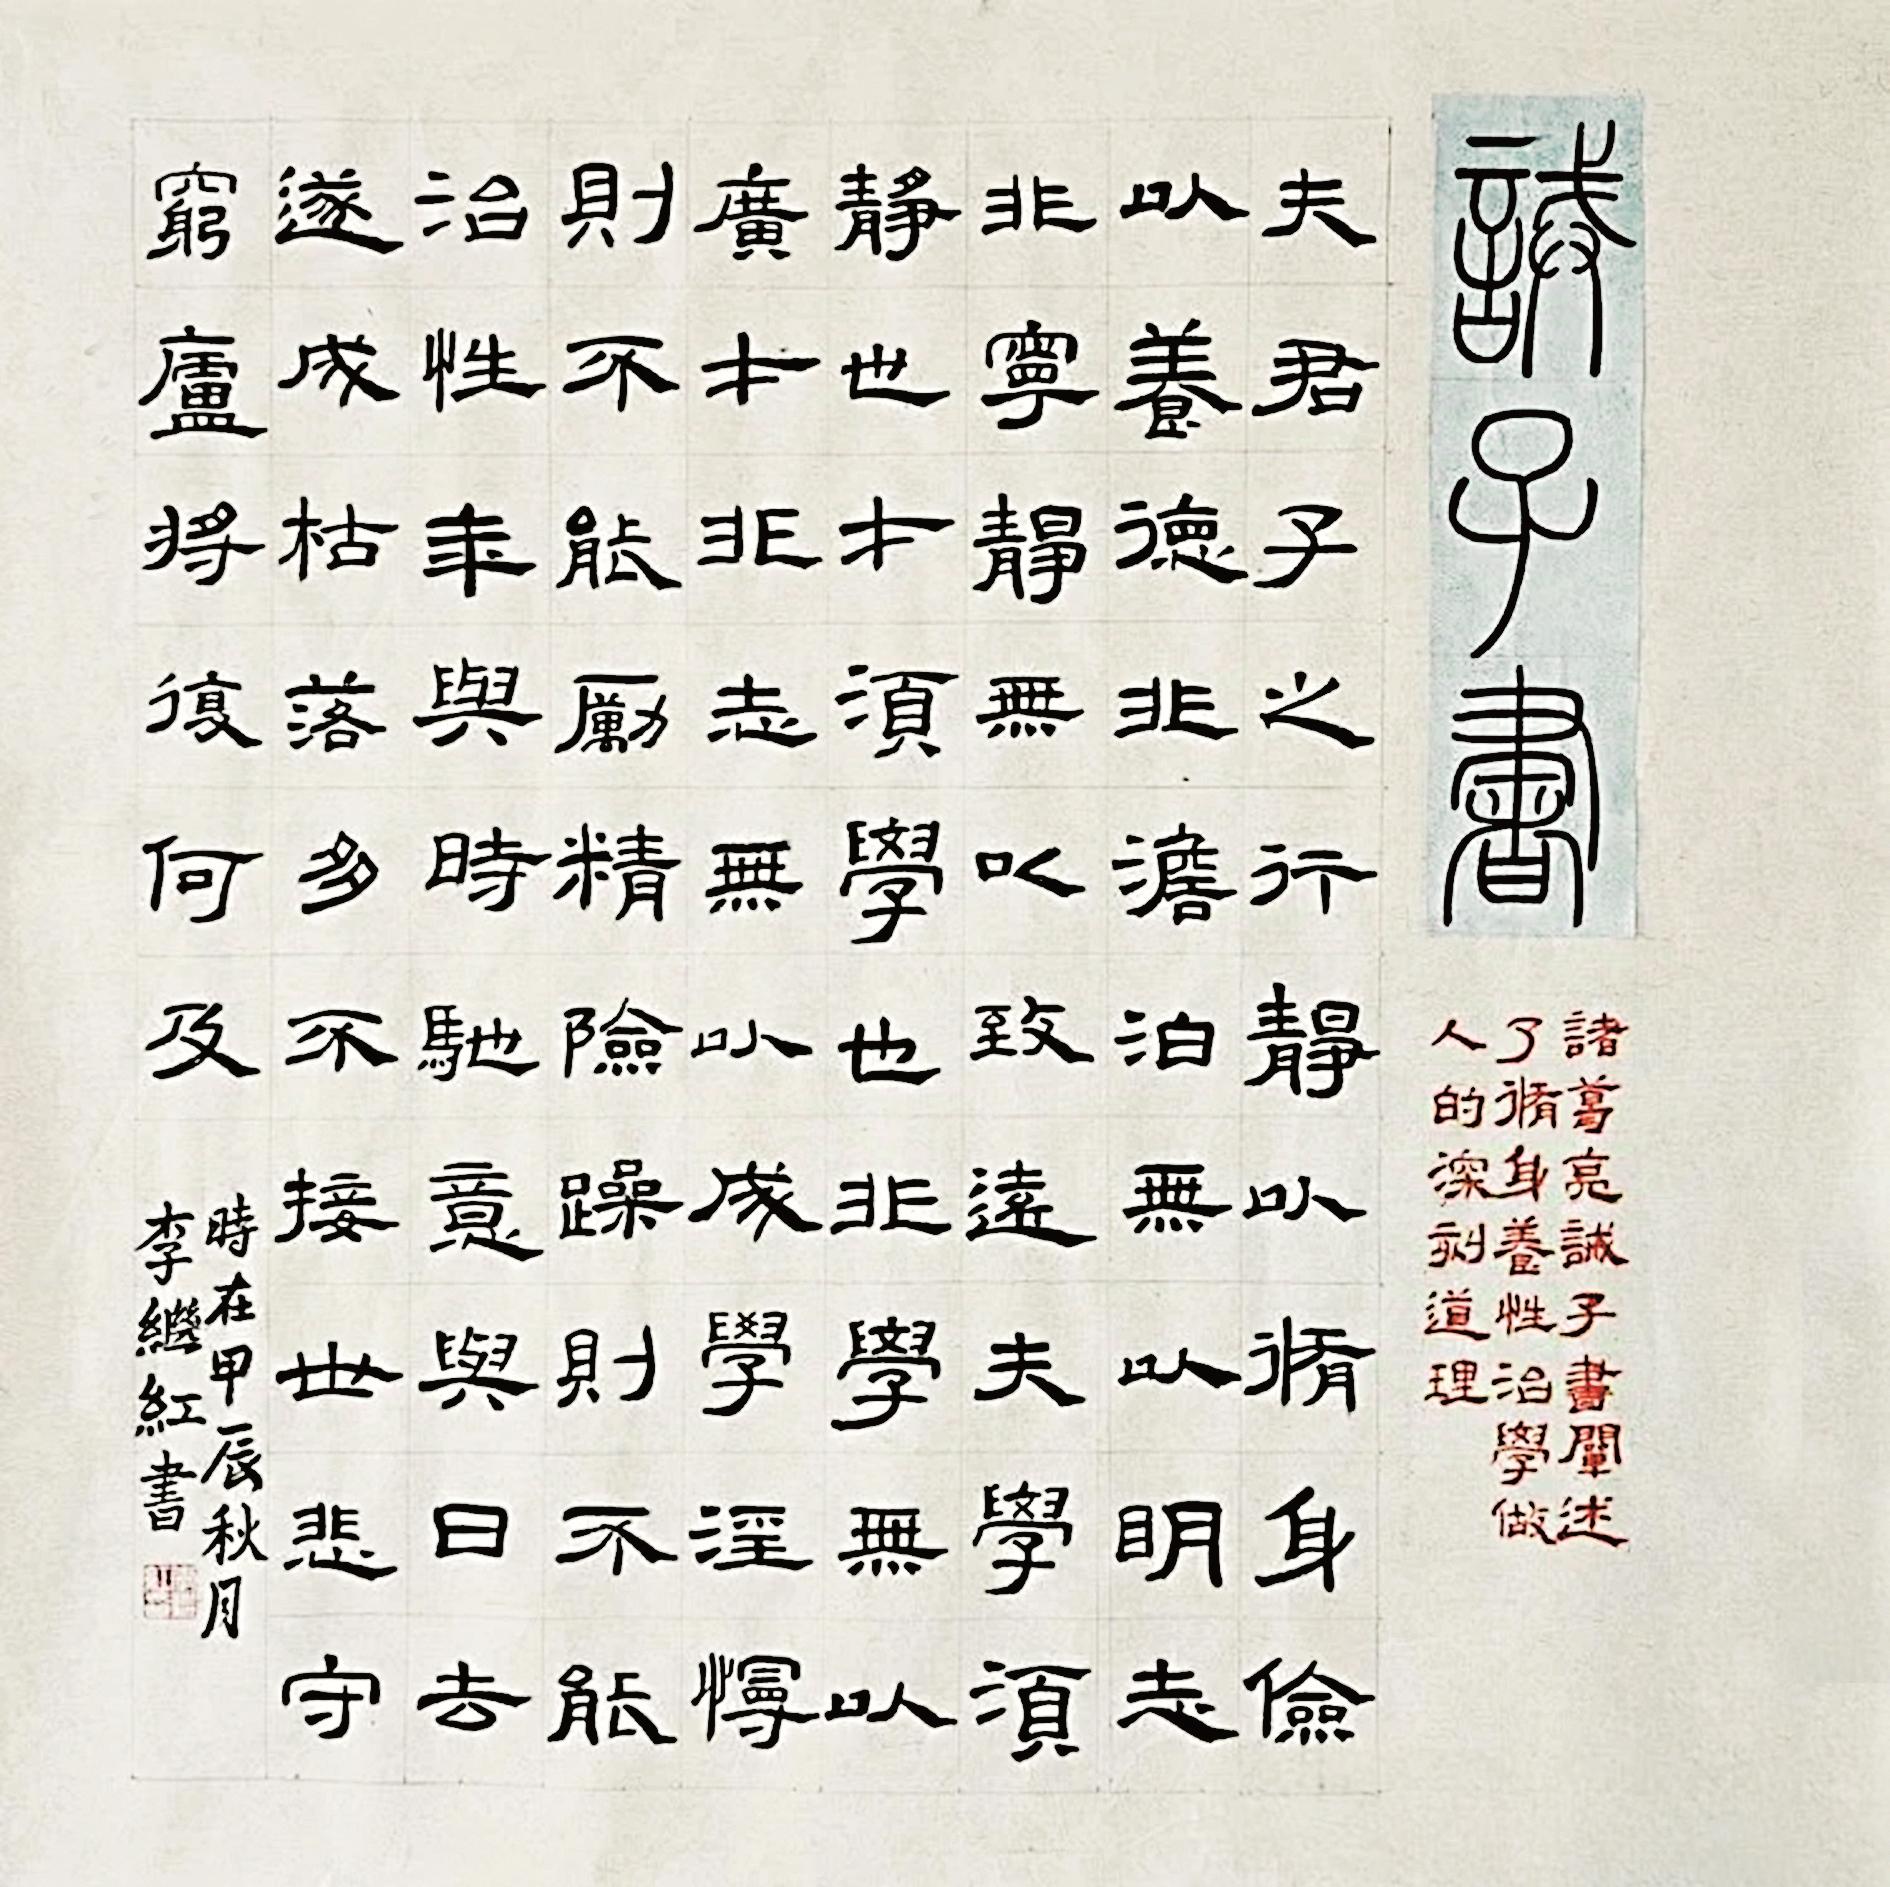 誡子書
諸葛亮誡子書闡述
了脩身養性治學做
人的深刻道理
夫君子之行靜以脩身儉
以養德非澹泊無以明志
非寧靜無以致遠夫學須
靜也才須學也非學無以
廣才非志無以成學淫慢
則不能勵精險躁則不能
治性年與時馳意與日去
遂成枯落多不接世悲守
窮廬將復何及
時在甲辰秋月
李繼紅書